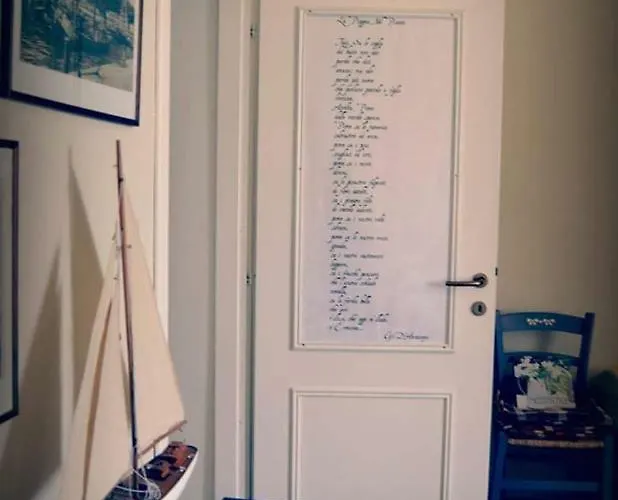 La Pioggia Nel Pineto
Taci. Su le soglie
del bosco non odo
parole che dici
umane; ma odo
parole più nuove
che parlano gocciole e foglie
lontane.
Ascolta. Piove
dalle nuvole sparse.
Piove su le tamerici
salmastre ed arse,
piove su i pini
scagliosi ed irti,
piove su i mirti
divini,
su le ginestre fulgenti
di fiori accolti,
su i ginepri folti
di coccole aulenti,
piove su i nostri volti
silvani,
piove su le nostre mani
ignude,
su i nostri vestimenti
leggieri,
su i freschi pensieri
che l'anima schiude
novella,
su la favola bella
che ieri
t'illuse, che oggi m'illude,
o Ermione....
D'Annunzio